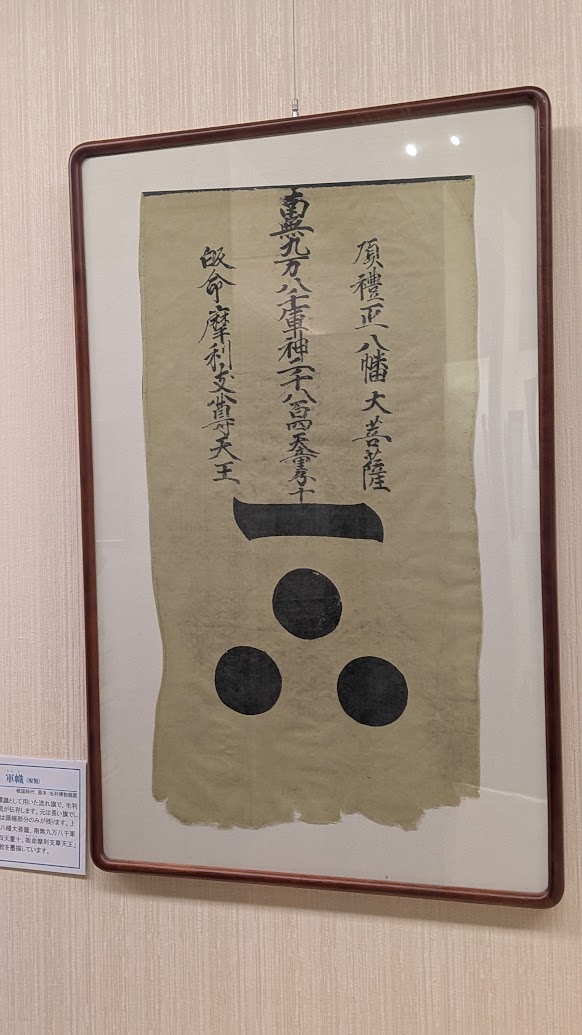 頂禮正八幡大菩薩
南無九万八千軍神二千八百四天童
皈命摩利支尊天王
軍幟（複製）
戦国時代 原本：毛利博物館蔵
標識として用いた流れ旗で、毛利
が伝存します。元は長い旗でし
は頭端部分のみが残ります。上
八幡大菩薩、南無九万八千軍
四天童十、皈命摩利支尊天王」
紋を墨描しています。